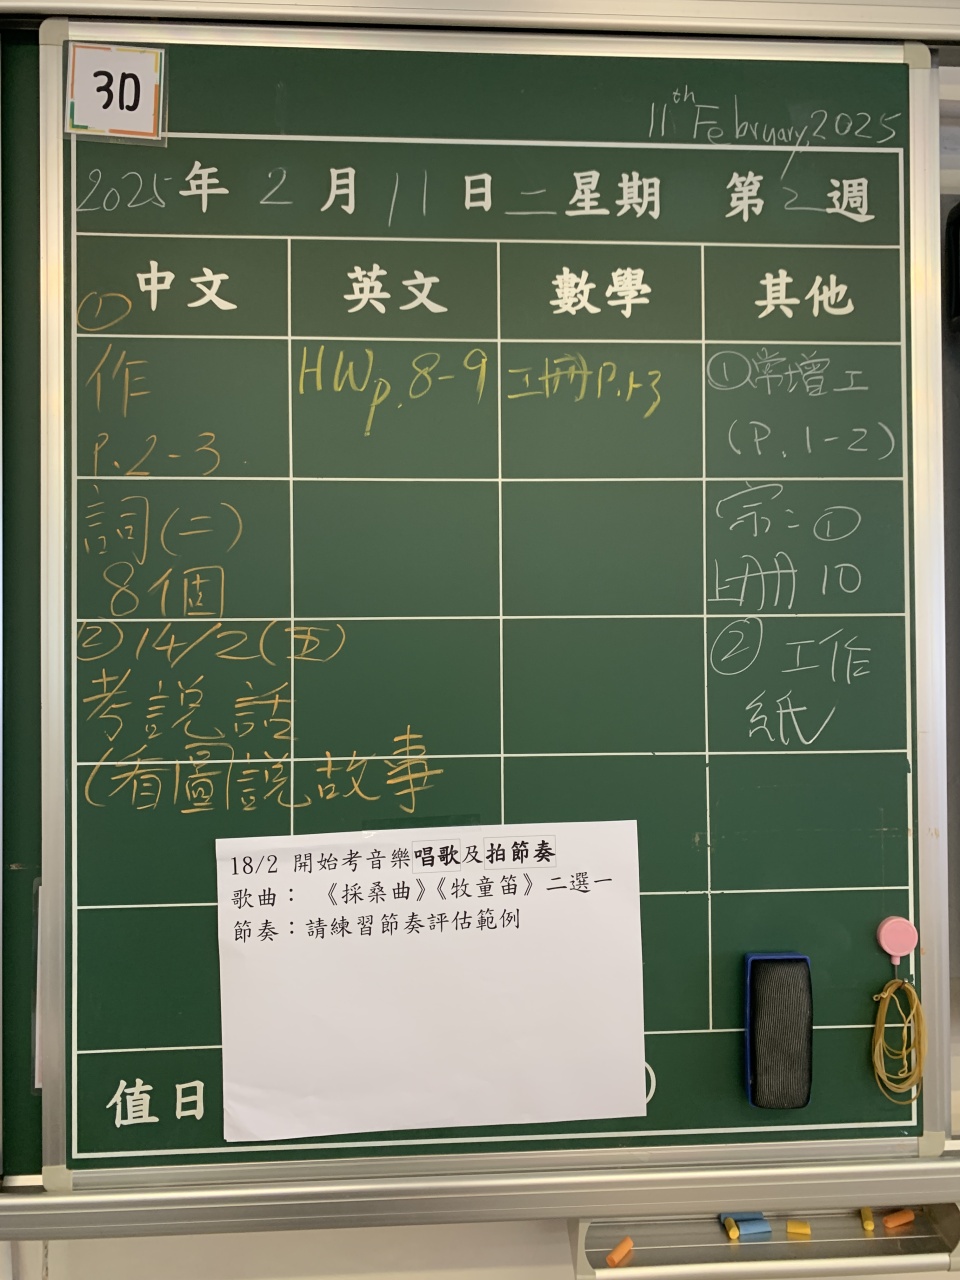 3D
11th February, 2025
2025年2月11日二星期 第2週
中文 英文 數學 其他
①
作
P.2-3
詞(二)
8個
②14/2(五)
考說話
(看圖說故事
HW p.8-9
工冊P.1-3
①常增工
(P.1-2)
宗:①
上冊10
②工作
紙
18/2 開始考音樂唱歌及拍節奏
歌曲：《採桑曲》《牧童笛》二選一
節奏：請練習節奏評估範例
值日